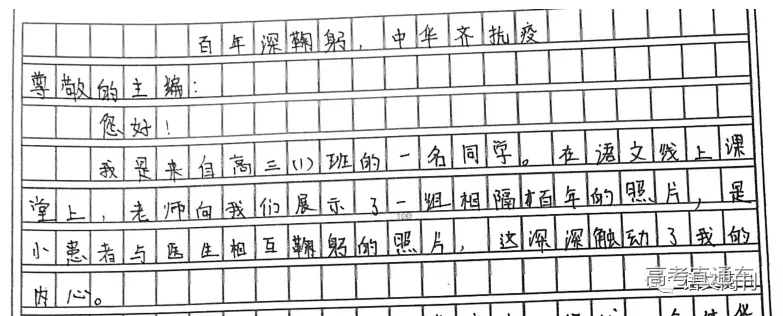 百年深鞠躬，中华齐抗疫
尊敬的主编：
您好！
我是来自高三（1）班的一名同学。在语文线上课
堂上，老师向我们展示了一组相隔百年的照片，是
小患者与医生相互鞠躬的照片，这深深触动了我的
内心。
高考直通车